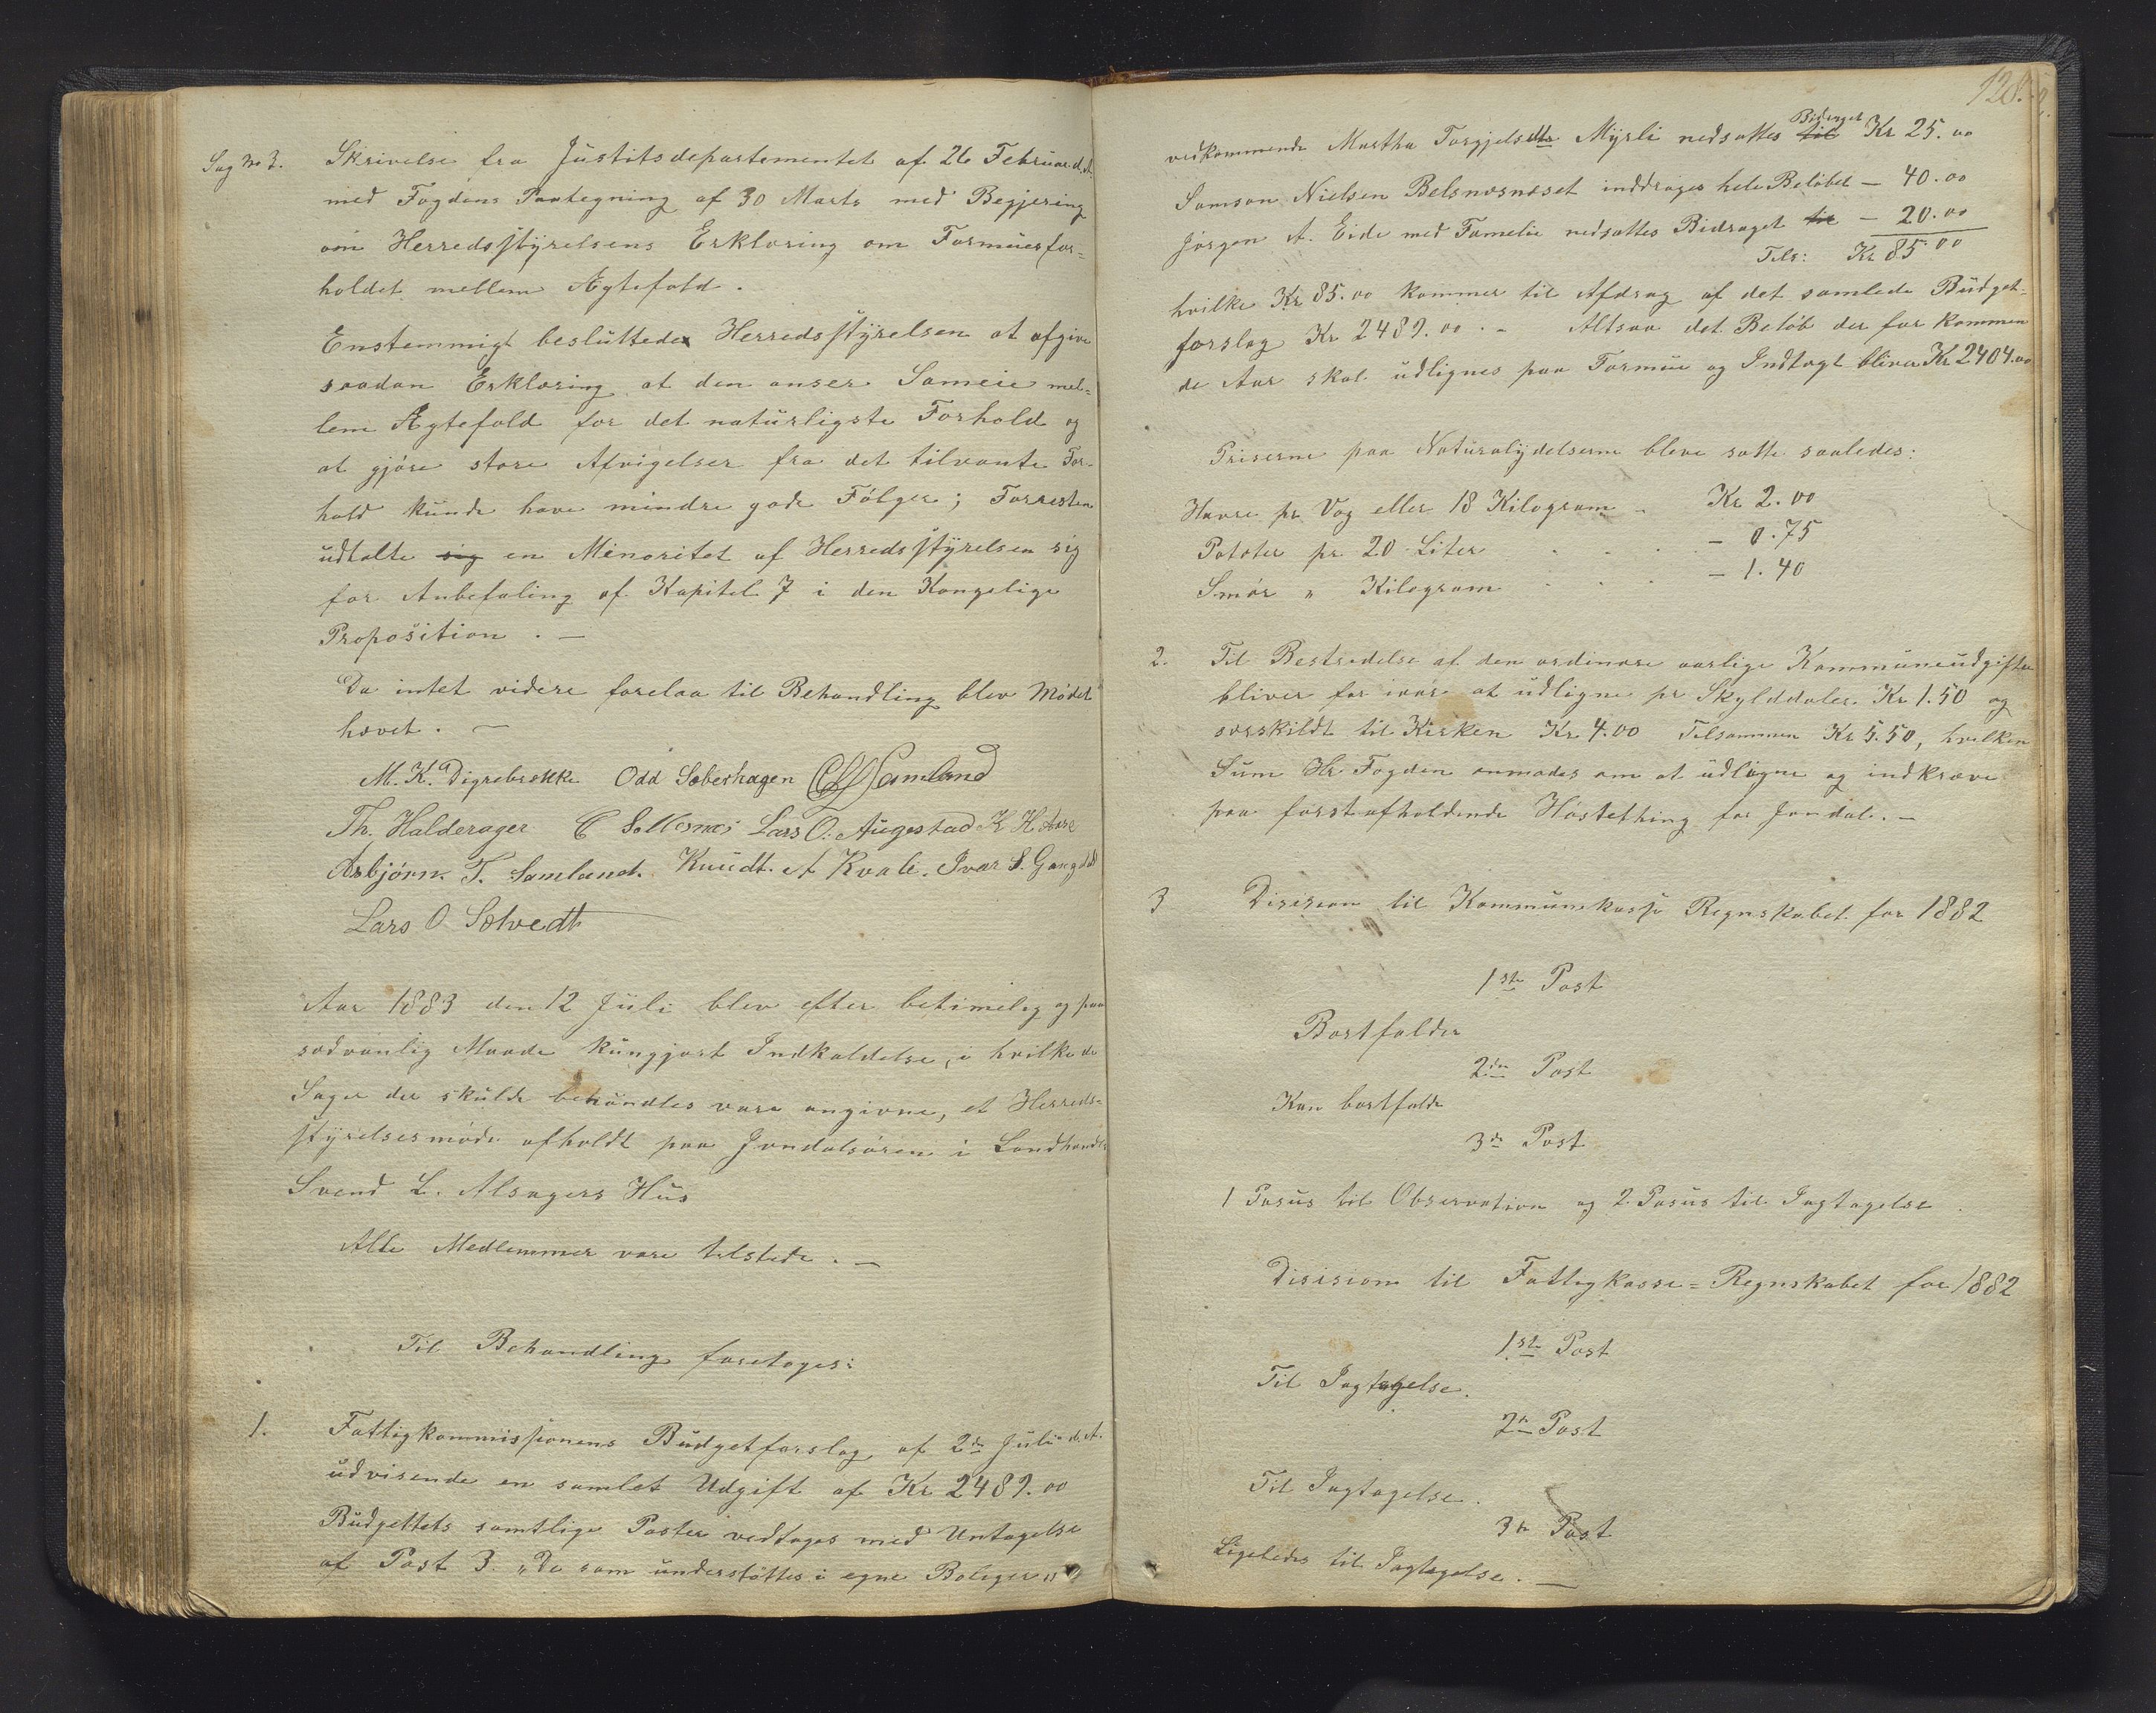 Sag No 3. Skrivelse fra Justitsdepartementet af 26 Februar d. A.
med Fogdens Paategning af 30 Marts med Begjæring
om Herredsstyrelsens Erklæring om Formuesfor=
holdet mellem Ægtefold.
Enstemmigt besluttedes Herredsstyrelsen at afgive
saadan Erklæring at den anser Sameie mel=
lem Ægtefold for det naturligste Forhold og
at gjøre store Afvigelser fra det tilvante For-
hold kunde have mindre gode Følger; Forresten
udtalte sig en Minoritet af Herredsstyrelsen sig
for Anbefaling af Kapitel 7 i den Kongelige
Proposition. —
Da intet videre forelaa til Behandling blev Mødet
hævet. —
M. K. Digrebrekke Odd Sæberhagen Samland
Th. Halderager C Sollesnes Lars O. Augestad K H Aase
Asbjørn T. Samland. Knudt A Kvale. Ivar S. Gangdal
Lars O Solvedt
Aar 1883 den 12 Juli blev efter betimelig og paa
sædvanlig Maade kungjort Indkaldelse, i hvilke de
Sager der skulde behandles vare angivne, et Herreds=
styrelsesmøde afholdt paa Jondalsøren i Landhandl.
Svend L. Alsagers Hus
Alle Medlemmer vare tilstede. —
Til Behandling foretoges:
1. Fattigkommissionens Budgetforslag af 2de Juli d. A.
udvisende en samlet Udgift af Kr 2489.00
Budgettets samtlige Poster vedtoges med Untagelse
af Post 3. „De som understøttes i egne Boliger"
128.
vedkommende Martha Torgjelsdtr Myrli nedsattes til Bidraget Kr 25.00
Samson Nielsen Belsnæsnæset inddrages hele Beløbet — 40.00
Jørgen A. Eide med Familie nedsattes Bidraget til — 20.00
Tils: Kr 85.00
hvilke Kr 85.00 kommer til Afdrag af det samlede Budget-
forslag Kr 2489.00. – Altsaa det Beløb der for kommen
de Aar skal udlignes paa Formue og Indtægt bliver Kr 2404.00
Priserne paa Naturalydelserne bleve satte saaledes:
Havre pr Vog eller 18 Kilogram - Kr 2.00
Poteter pr 20 Liter . . . — 0.75
Smør " Kilogram . . . — 1.40
2. Til Bestredelse af den ordinære aarlige Kommuneudgifter
bliver for iaar at udligne pr Skylddaler Kr 1.50 og
særskildt til Kirken Kr 4.00 Tilsammen Kr 5.50, hvilken
Sum Hr Fogden anmodes om at udligne og indkræve
paa førstafholdende Høstething for Jondal. —
3 Disision til Kommunekasse Regnskabet for 1882
1ste Post
Bortfalder
2den Post
Kan bortfalde
3de Post
1 Pasus til Observation og 2. Pasus til Iagtagelse.
Disision til Fattigkasse=Regnskabet for 1882
1ste Post
Til Iagtagelse.
2de Post
Til Iagtagelse.
3de Post
Ligeledes til Iagtagelse. —